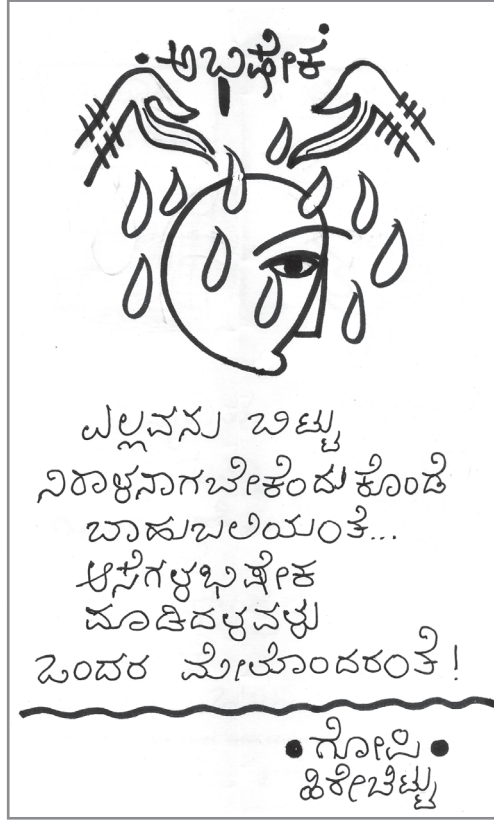 ಅಭಿಷೇಕ
ಎಲ್ಲವನು ಬಿಟ್ಟು
ನಿರಾಳನಾಗಬೇಕೆಂದುಕೊಂಡೆ
ಬಾಹುಬಲಿಯಂತೆ...
ಆಸೆಗಳಭಿಷೇಕ
ಮಾಡಿದಳವಳು
ಒಂದರ ಮೇಲೊಂದರಂತೆ!
ಗೋಪಿ
ಹಿರೇಬೆಟ್ಟು